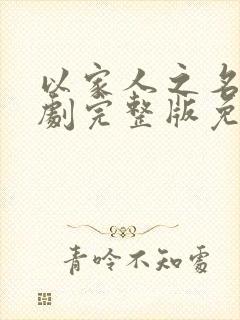 以家人之名
劇完整版免
青呤不知處